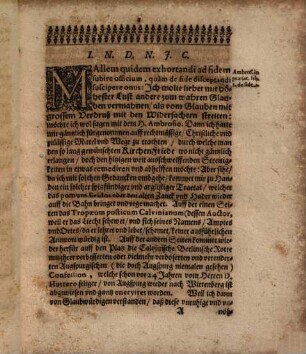 I. N. D. N. J. C.
MAllem quidem exhortandi ad fidem
subire officium, quàm de fide disceptandi
suscipere onus: Ich wolte lieber mit höch-
ster Lust andere zum wahren Glau-
ben vermahnen / als vom Glauben mit
grossem Verdruß mit den Widersachern streiten:
möchte ich wol sagen mit dem H. Ambrosio. Dann ich hatte
mir gäntzlich fürgenommen auff rechtmässige / Christliche und
zulässige Mittel und Wege zu trachten / durch welche man
den so lang gewünschten Kirchenfriede wo nicht gäntzlich
erlangen / doch den hinigen weit ausschweiffenden Streitig-
keiten in etwas remediren und abhelffen möchte: Aber sihe /
da ich mit solchen Gedancken umgehe / kommen mir zu Han-
den ein solcher spitzfündiger und argistiger Tractat / welcher
das den alten Zanck und Hader wieder
auff die Bahn bringet und rege machet. Auff der einen Sei-
ten das Tropæum posticum Calvinianum (dessen Auctor,
weil er das Liecht scheuet / und sich seines Namens / Amptes
und Ortes / da er lehret und lebet / schemet / keiner ausführlichen
Antwort würdig ist. Auff der andern Seiten kommt wie-
der herfür auff den Plan die Calixische Berlinische Rotte
mit ihrer verbesserten oder vielmehr verböserten und verendten
Augspurgischen (die doch Augspurg niemalen gesehen)
Confession, welche schon vor 24 Jahren vom Herren D.
Huttero seliger / von Augspurg wieder nach Wittenberg ist
abgewiesen und gantz enerviret worden. Weil ich dann
von Glaubwürdigen verstanden / daß diese unruhige und vo-
A